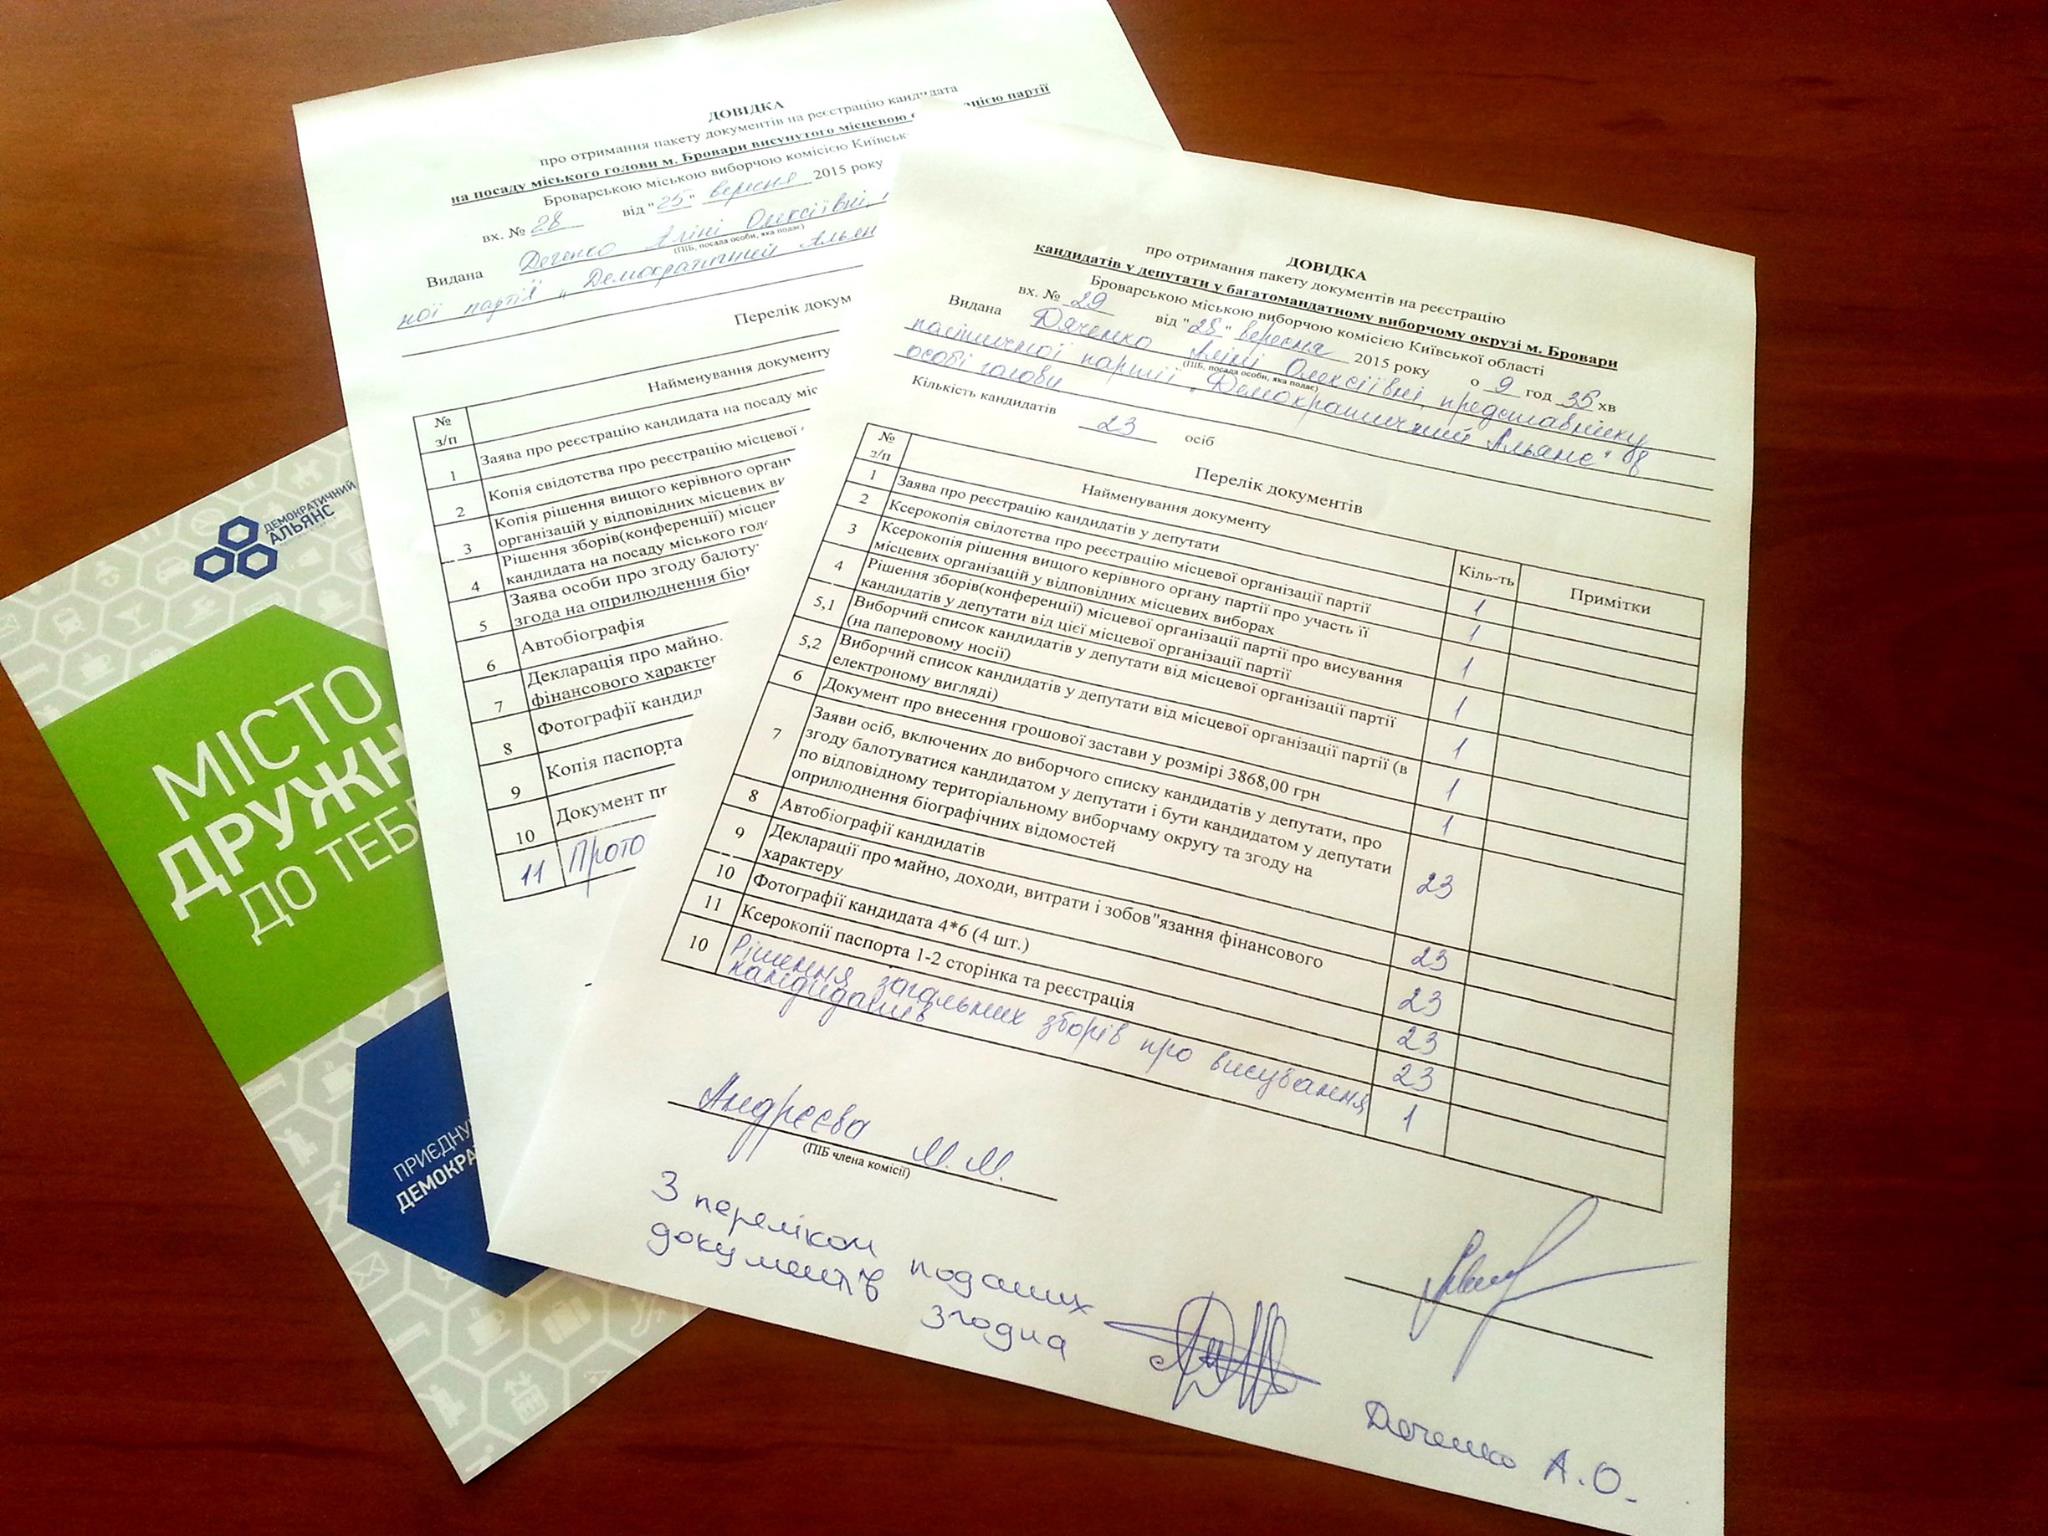 ДОВІДКА
про отримання пакету документів на реєстрацію кандидата
на посаду міського голови м. Бровари висунутого місцевою цією партії
Броварською міською виборчою комісією Київськ
вх. № 28 від "25" вересня 2015 року
Видана Дяченко Аліні Олексіївні,
(ПІБ, посада особи, яка подає)
ної партії „Демократичний Альян
Перелік докум
№ з/п Найменування документу
1 Заява про реєстрацію кандидата на посаду міс
2 Копія свідотства про реєстрацію місцевої
3 Копія рішення вищого керівного орган
організацій у відповідних місцевих ви
4 Рішення зборів(конференції) місцев
кандидата на посаду міського гол
5 Заява особи про згоду балоту
згода на оприлюднення біо
6 Автобіографія
7 Декларація про майно.
фінансового характер
8 Фотографії кандид
9 Копія паспорта
10 Документ пр
11 Прото
ДОВІДКА
про отримання пакету документів на реєстрацію
кандидатів у депутати у багатомандатному виборчому окрузі м. Бровари
Броварською міською виборчою комісією Київської області
вх. № 29 від "28" вересня 2015 року о 9 год 35 хв
Видана Дяченко Аліні Олексіївні, представнику
(ПІБ, посада особи, яка подає)
політичної партії „Демократичний Альянс" в
особі голови
Кількість кандидатів 23 осіб
Перелік документів
№ з/п Найменування документу Кіль-ть Примітки
1 Заява про реєстрацію кандидатів у депутати 1
2 Ксерокопія свідотства про реєстрацію місцевої організації партії 1
3 Ксерокопія рішення вищого керівного органу партії про участь її
місцевих організацій у відповідних місцевих виборах 1
4 Рішення зборів(конференції) місцевої організації партії про висування
кандидатів у депутати від цієї місцевої організації партії 1
5,1 Виборчий список кандидатів у депутати від місцевої організації партії
(на паперовому носії) 1
5,2 Виборчий список кандидатів у депутати від місцевої організації партії (в
електроному вигляді) 1
6 Документ про внесення грошової застави у розмірі 3868,00 грн 1
7 Заяви осіб, включених до виборчого списку кандидатів у депутати, про
згоду балотуватися кандидатом у депутати і бути кандидатом у депутати
по відповідному територіальному виборчаму округу та згоду на
оприлюднення біографічних відомостей 23
8 Автобіографії кандидатів 23
9 Декларації про майно, доходи, витрати і зобов"язання фінансового
характеру 23
10 Фотографії кандидата 4*6 (4 шт.) 23
11 Ксерокопії паспорта 1-2 сторінка та реєстрація 23
10 Рішення загальних зборів про висування
кандидатів 1
Андрєєва М.М.
(ПІБ члена комісії)
З переліком поданих
документів згодна
Дяченко А.О.
ДЕМОКРАТИЧНИЙ
АЛЬЯНС
МІСТО
ДРУЖН
ДО ТЕБ
ПРИЄДНУ
ДЕМОКРА